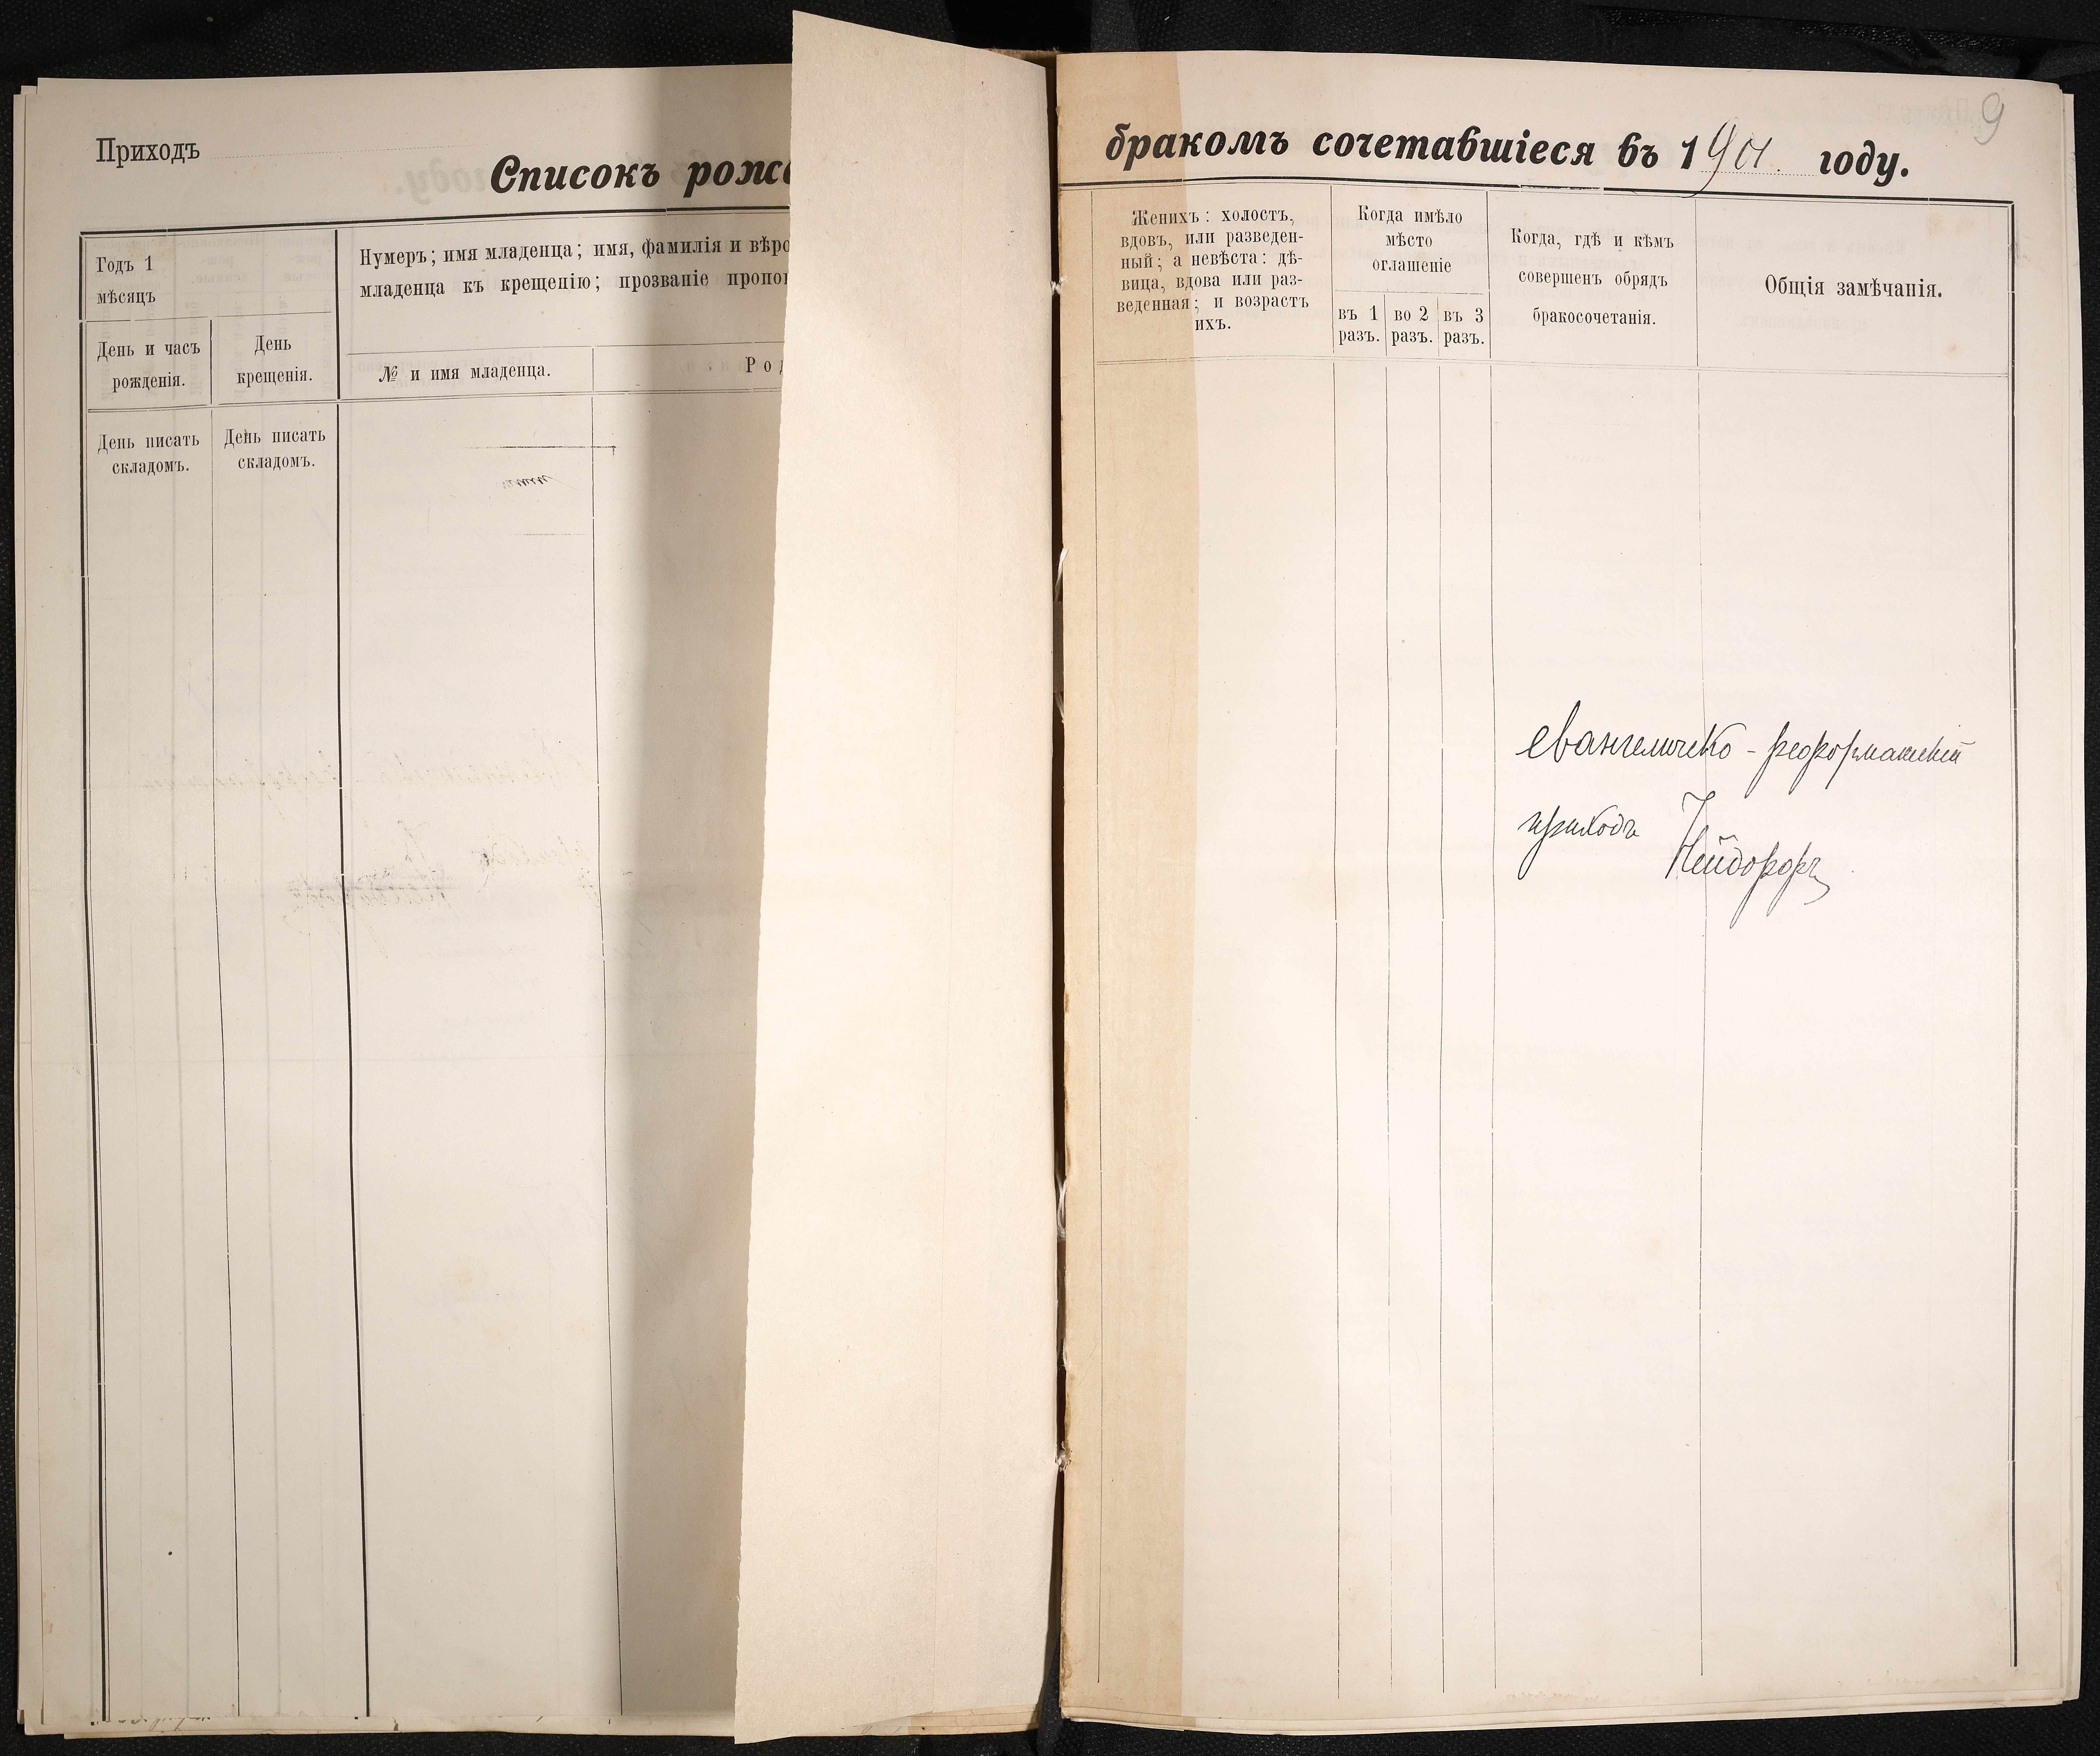 Приходъ
Списокъ рожд
Годъ 1
мѣсяцъ
День и часъ
рожденія.
День
крещенія.
Нумеръ; имя младенца; имя, фамилія и вѣро
младенца къ крещенію; прозваніе пропо
№ и имя младенца.
Род
День писать
складомъ.
День писать
складомъ.
9
бракомъ сочетавшіеся въ 1901 году.
Женихъ: холостъ,
вдовъ, или разведен-
ный; а невѣста: дѣ-
вица, вдова или раз-
веденная; и возрастъ
ихъ.
Когда имѣло
мѣсто
оглашеніе
въ 1
разъ.
во 2
разъ.
въ 3
разъ.
Когда, гдѣ и кѣмъ
совершенъ обрядъ
бракосочетанія.
Общія замѣчанія.
евангеличско-реформатскій
приходъ
Нейдорфъ